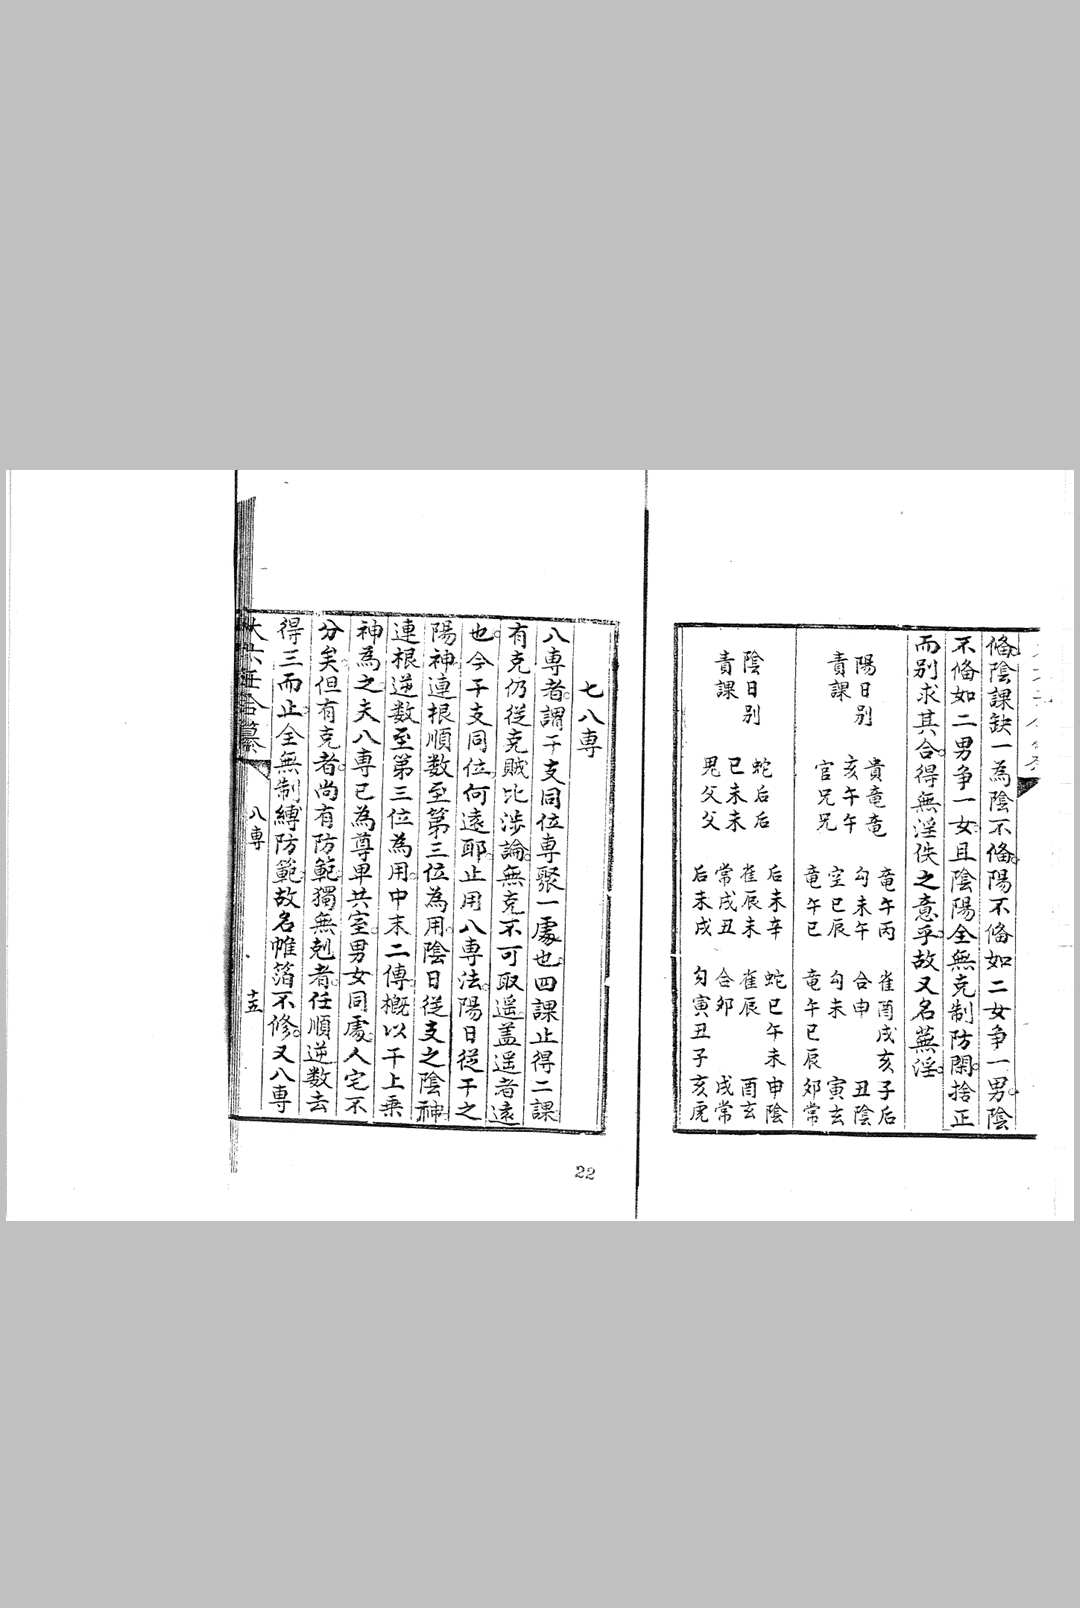 俻陰課缺一為陰不俻陽不俻如二女争一男陰
不俻如二男争一女且陰陽全無克制防閑捨正
而别求其合得無淫佚之意乎故又名蕪淫
陽日别
責課
貴竜竜
亥午午
官兄兄
竜午丙
勾未午
空巳辰
竜午巳
雀酉戌亥子后
合申 丑陰
勾未 寅玄
竜午巳辰卯常
陰日别
責課
蛇后后
巳未未
鬼父父
后未辛
雀辰未
常戌丑
后未戌
蛇巳午未申陰
雀辰 酉玄
合卯 戌常
勾寅丑子亥虎
七八専
八専者謂干支同位専聚一處也四課止得二課
有克仍従克賊比涉論無克不可取遥盖遥者遠
也今干支同位何遠耶止用八専法陽日従干之
陽神連根順数至第三位為用陰日従支之陰神
連根逆数至第三位為用中末二傳概以干上乗
神為之夫八専已為尊卑共室男女同處人宅不
分矣但有克者尚有防範獨無剋者任順逆数去
得三而止全無制縛防範故名帷箔不修又八専
大六壬
八専
十五
22